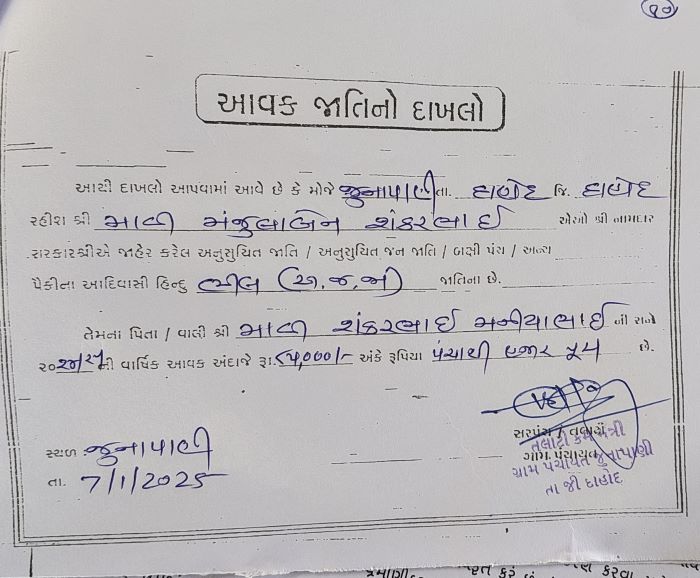 ૧૦
આવક જાતિનો દાખલો
આથી દાખલો આપવામાં આવે છે કે મોજે જુનાપાણી તા. દાહોદ જિ. દાહોદ
રહીશ શ્રી ભાભી મંજુલાબેન શંકરભાઈ એઓ શ્રી નામદાર
સરકારશ્રીએ જાહેર કરેલ અનુસુચિત જાતિ / અનુસુચિત જન જાતિ / બક્ષી પંચ / અન્ય
પૈકીના આદિવાસી હિન્દુ ભીલ (અ.જ.જા) જાતિના છે.
તેમના પિતા / વાલી શ્રી ભાભી શંકરભાઈ મનીયાભાઈ ની સને
૨૦૨૪/૨૫ની વાર્ષિક આવક અંદાજે રૂા. ૮૫,૦૦૦/- અંકે રૂપિયા પંચાશી હજાર પુરા છે.
સરપંચ / તલાટી
તલાટી કમ મંત્રી
સ્થળ જુનાપાણી
ગ્રામ પંચાયત
ગ્રામ પંચાયત જુનાપાણી
તા. 7/1/2025
તા જી દાહોદ